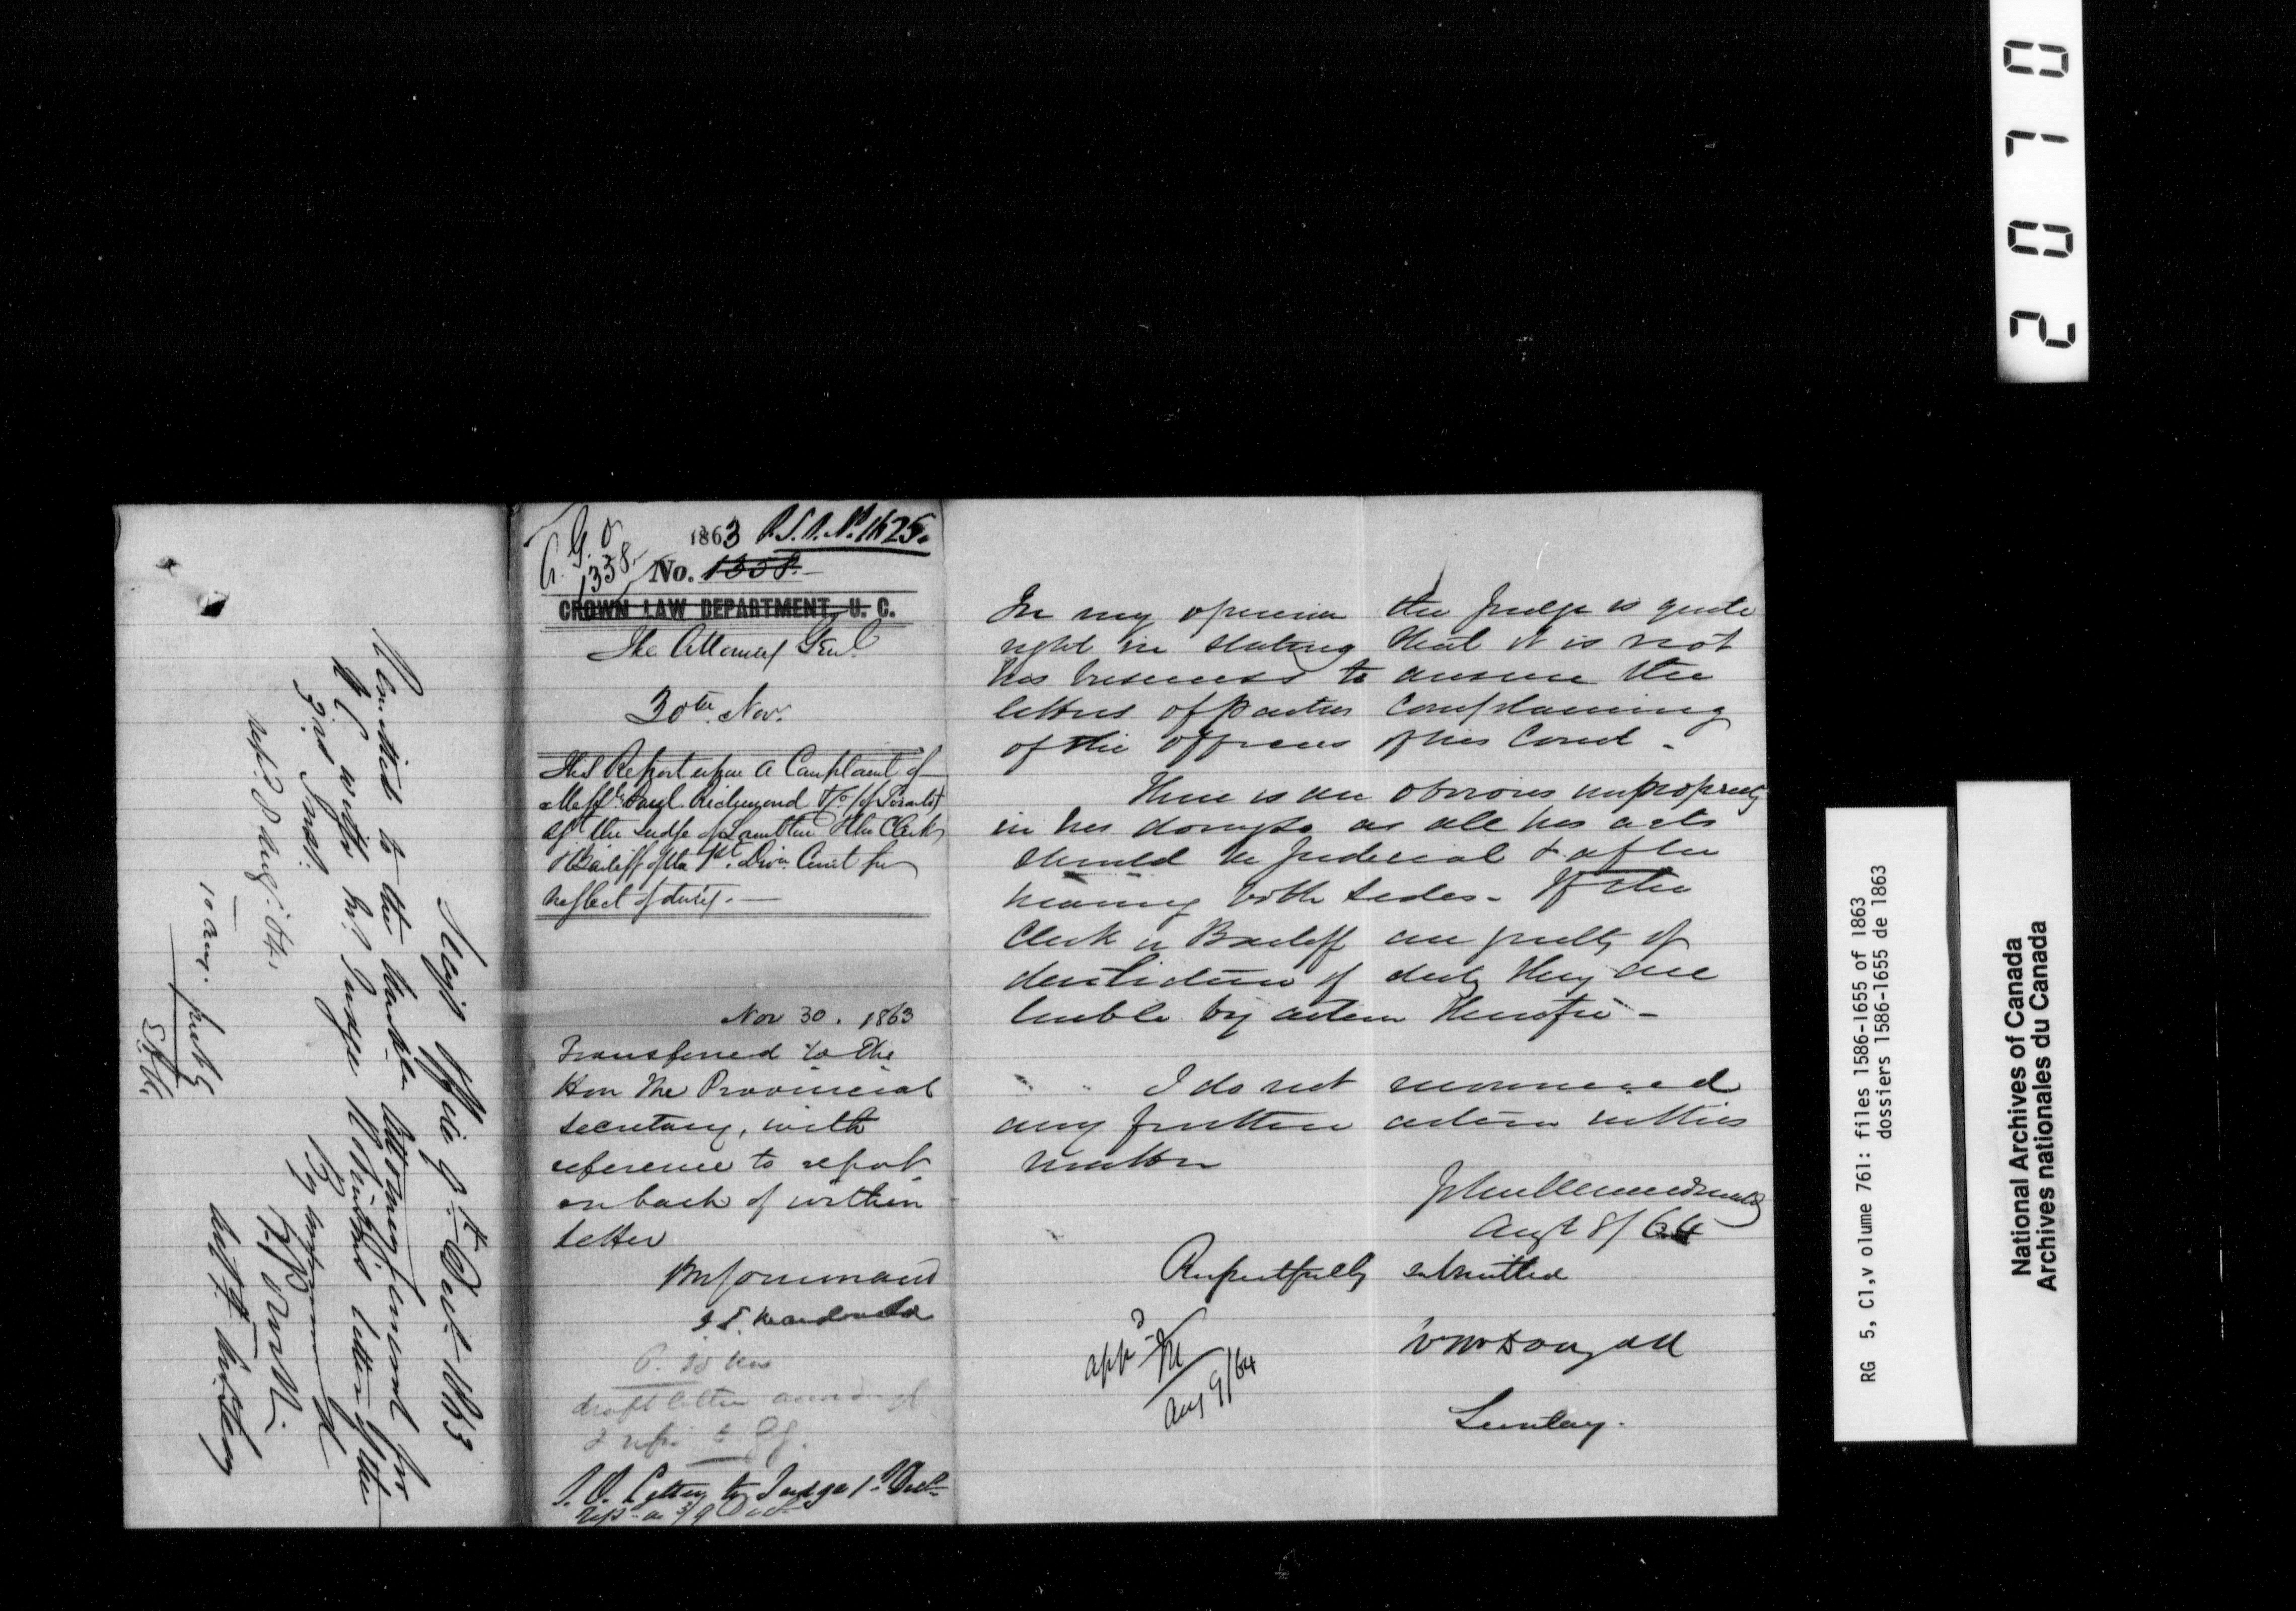 1863 P.S.O. No. 1625.
A. G. O
1338.
No. 1338.
CROWN LAW DEPARTMENT, U. C.
The Attorney Genl.
30th Nov.
His Report upon a Complaint of
Messrs. Paul Richmond & Co of
agt the Judge of Lambton & the Clerk
& Bailiff of the 1st Divn. Court for
neglect of duty. —
Nov 30. 1863
Transferred to the
Hon the Provincial
Secretary, with
reference to report
on back of within
letter
By Command
J S. Macdonald
draft letter accordingly
P.O. Letter to Judge 1st Decr
Govr's Office 9th Decr 1863
Remitted to the Honble Attorney General for
U C with Mr Judge Robinson's letter of the
3rd Inst.
By
Repd 8 Aug: 64.
10 Aug.
In my opinion the Judge is quite
right in stating that it is not
his business to answer the
letters of parties complaining
of the officers of his Court -
There is an obvious impropriety
in his doing so as all his acts
should be judicial & after
hearing both sides - If the
Clerk or Bailiff are guilty of
dereliction of duty they are
liable by action therefor -
I do not recommend
any further action in this
matter
John A Macdonald
Augt 8/64
Respectfully submitted
Wm McDougall
Secretary.
appd
M
Aug 9/64
2070
RG 5, C1,v olume 761: files 1586-1655 of 1863
dossiers 1586-1655 de 1863
National Archives of Canada
Archives nationales du Canada